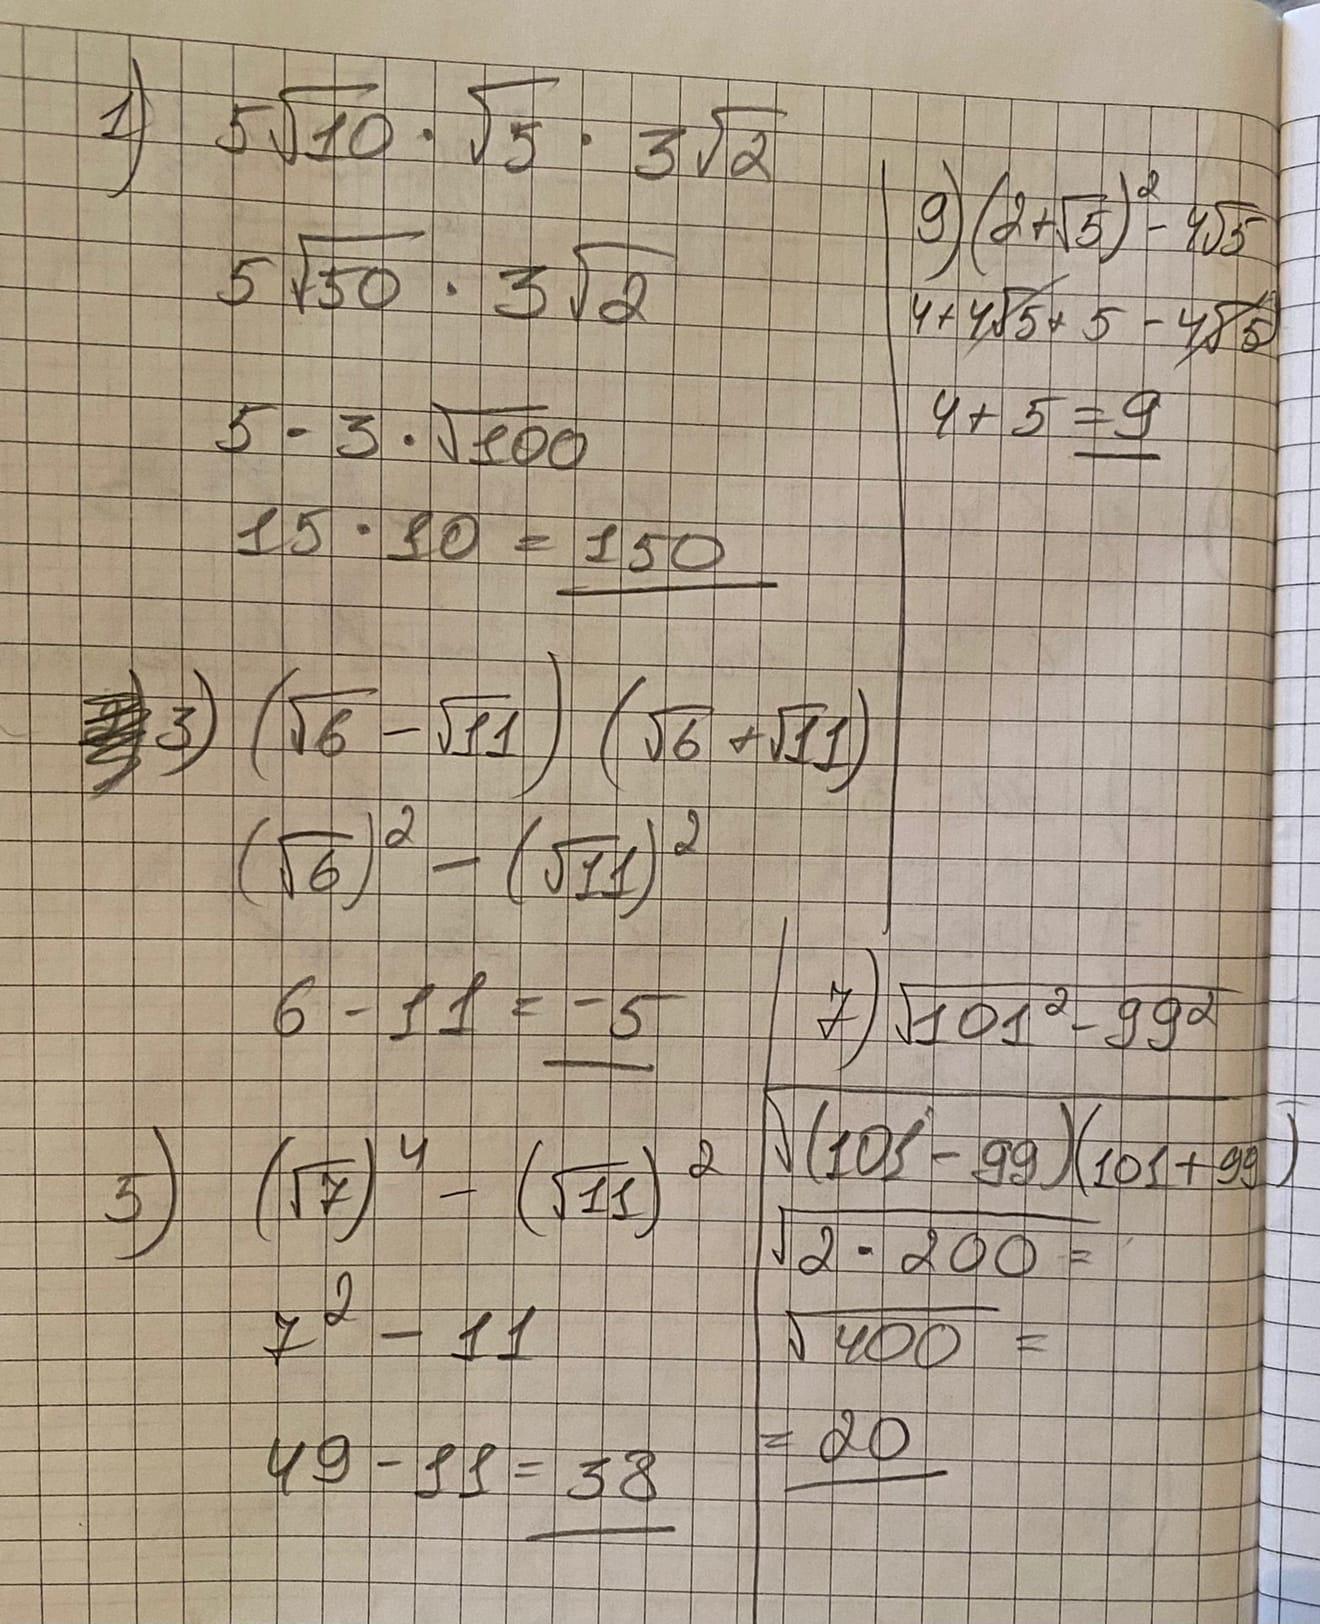 1) 5√10 · √5 · 3√2
5√50 · 3√2
5 · 3 · √100
15 · 10 = 150
3) (√6 - √11) (√6 + √11)
(√6)² - (√11)²
6 - 11 = -5
5) (√7)⁴ - (√11)²
7² - 11
49 - 11 = 38
9) (2+√5)² - 4√5
4 + 4√5 + 5 - 4√5
4 + 5 = 9
7) √101² - 99²
√(101 - 99)(101 + 99)
√2 · 200 =
√400 =
= 20